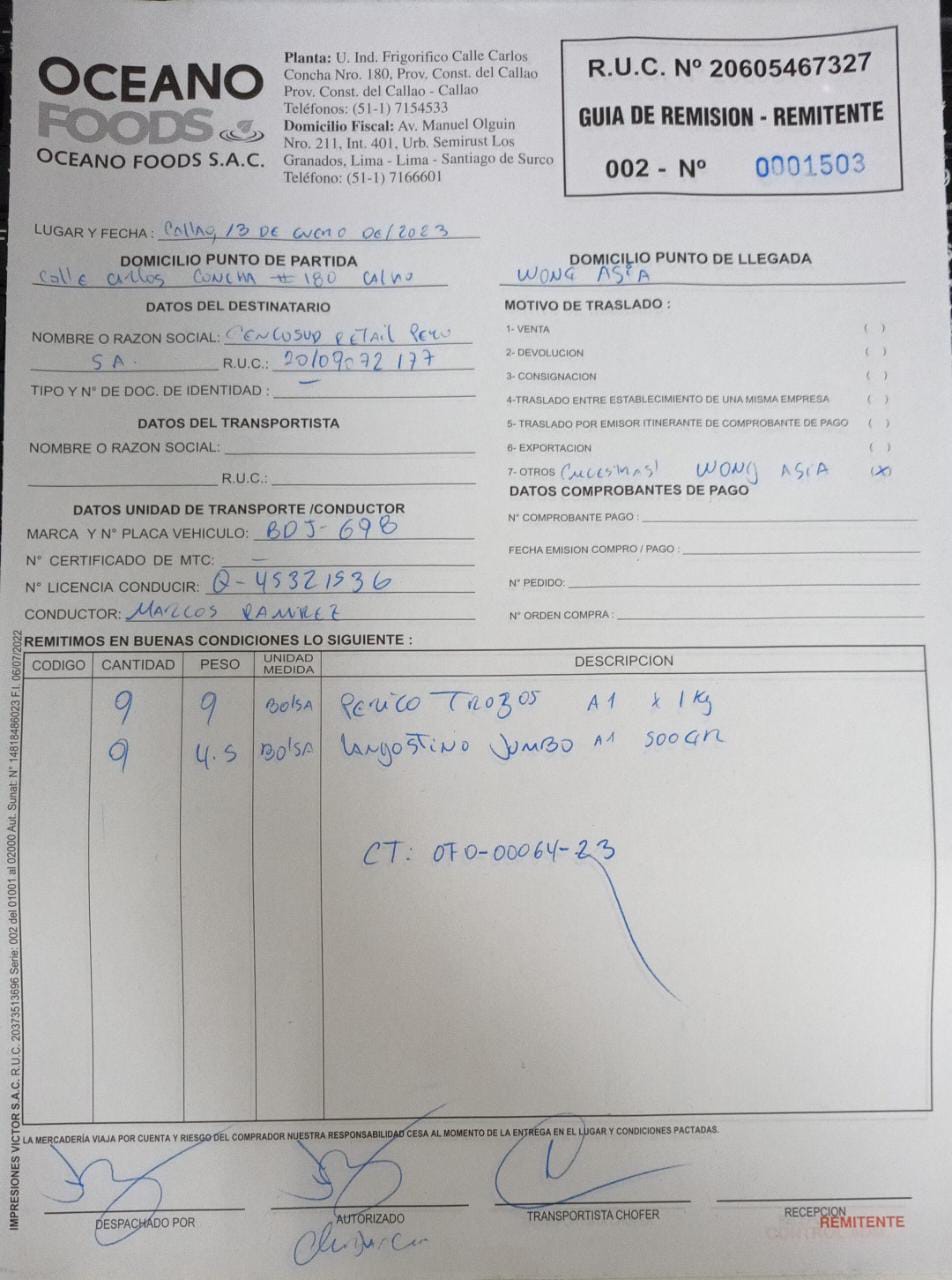 OCEANO
FOODS
OCEANO FOODS S.A.C.
Planta: U. Ind. Frigorifico Calle Carlos
Concha Nro. 180, Prov. Const. del Callao
Prov. Const. del Callao - Callao
Teléfonos: (51-1) 7154533
Domicilio Fiscal: Av. Manuel Olguin
Nro. 211, Int. 401, Urb. Semirust Los
Granados, Lima - Lima - Santiago de Surco
Teléfono: (51-1) 7166601
R.U.C. Nº 20605467327
GUIA DE REMISION - REMITENTE
002 - Nº 0001503
LUGAR Y FECHA : Callao, 13 DE enero De/2023
DOMICILIO PUNTO DE PARTIDA
Calle Carlos CONCHA # 180 Callao
DOMICILIO PUNTO DE LLEGADA
WONG ASIA
DATOS DEL DESTINATARIO
NOMBRE O RAZON SOCIAL: CENCOSUD RETAIL Peru
S A. R.U.C.: 20109072177
TIPO Y N° DE DOC. DE IDENTIDAD : —
DATOS DEL TRANSPORTISTA
NOMBRE O RAZON SOCIAL:
R.U.C.:
DATOS UNIDAD DE TRANSPORTE /CONDUCTOR
MARCA Y N° PLACA VEHICULO: BDJ-698
N° CERTIFICADO DE MTC: —
N° LICENCIA CONDUCIR: Q-45321536
CONDUCTOR: MARCOS RAMIREZ
MOTIVO DE TRASLADO :
1- VENTA ( )
2- DEVOLUCION ( )
3- CONSIGNACION ( )
4-TRASLADO ENTRE ESTABLECIMIENTO DE UNA MISMA EMPRESA ( )
5- TRASLADO POR EMISOR ITINERANTE DE COMPROBANTE DE PAGO ( )
6- EXPORTACION ( )
7- OTROS WONG ASIA (X)
DATOS COMPROBANTES DE PAGO
N° COMPROBANTE PAGO :
FECHA EMISION COMPRO / PAGO :
N° PEDIDO:
N° ORDEN COMPRA :
REMITIMOS EN BUENAS CONDICIONES LO SIGUIENTE :
CODIGO CANTIDAD PESO UNIDAD MEDIDA DESCRIPCION
9 9 Bolsa Perico Trozos A1 x 1Kg
9 4.5 Bolsa Langostino Jumbo A1 500GR
CT: OFO-00064-23
LA MERCADERÍA VIAJA POR CUENTA Y RIESGO DEL COMPRADOR NUESTRA RESPONSABILIDAD CESA AL MOMENTO DE LA ENTREGA EN EL LUGAR Y CONDICIONES PACTADAS.
DESPACHADO POR
AUTORIZADO
TRANSPORTISTA CHOFER
RECEPCION
REMITENTE
IMPRESIONES VICTOR S.A.C. R.U.C. 20373513696 Serie: 002 del 01001 al 02000 Aut. Sunat: N° 14818486023 F.I. 06/07/2022